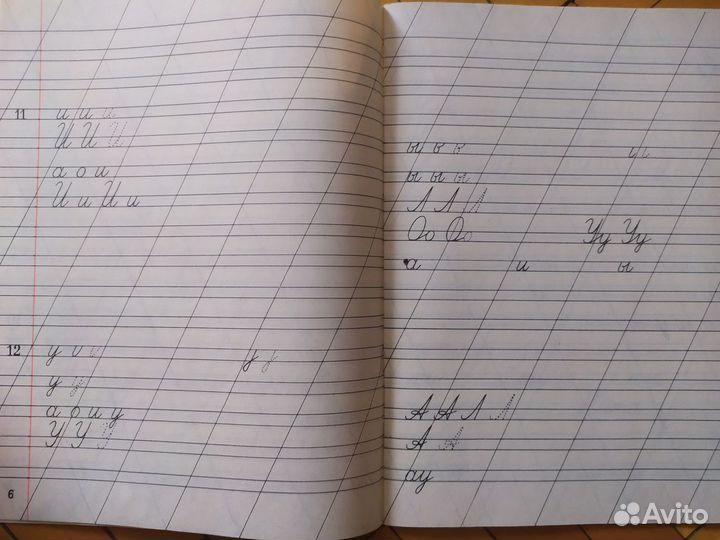 11 и и и
И И И
а о и
И и И и
12 у у
у у
а о и у
У У У
6
ы ы ы
Л Л Л
Оо Оо Уу Уу
а и ы
А А Л Л
А А
ау
Avito